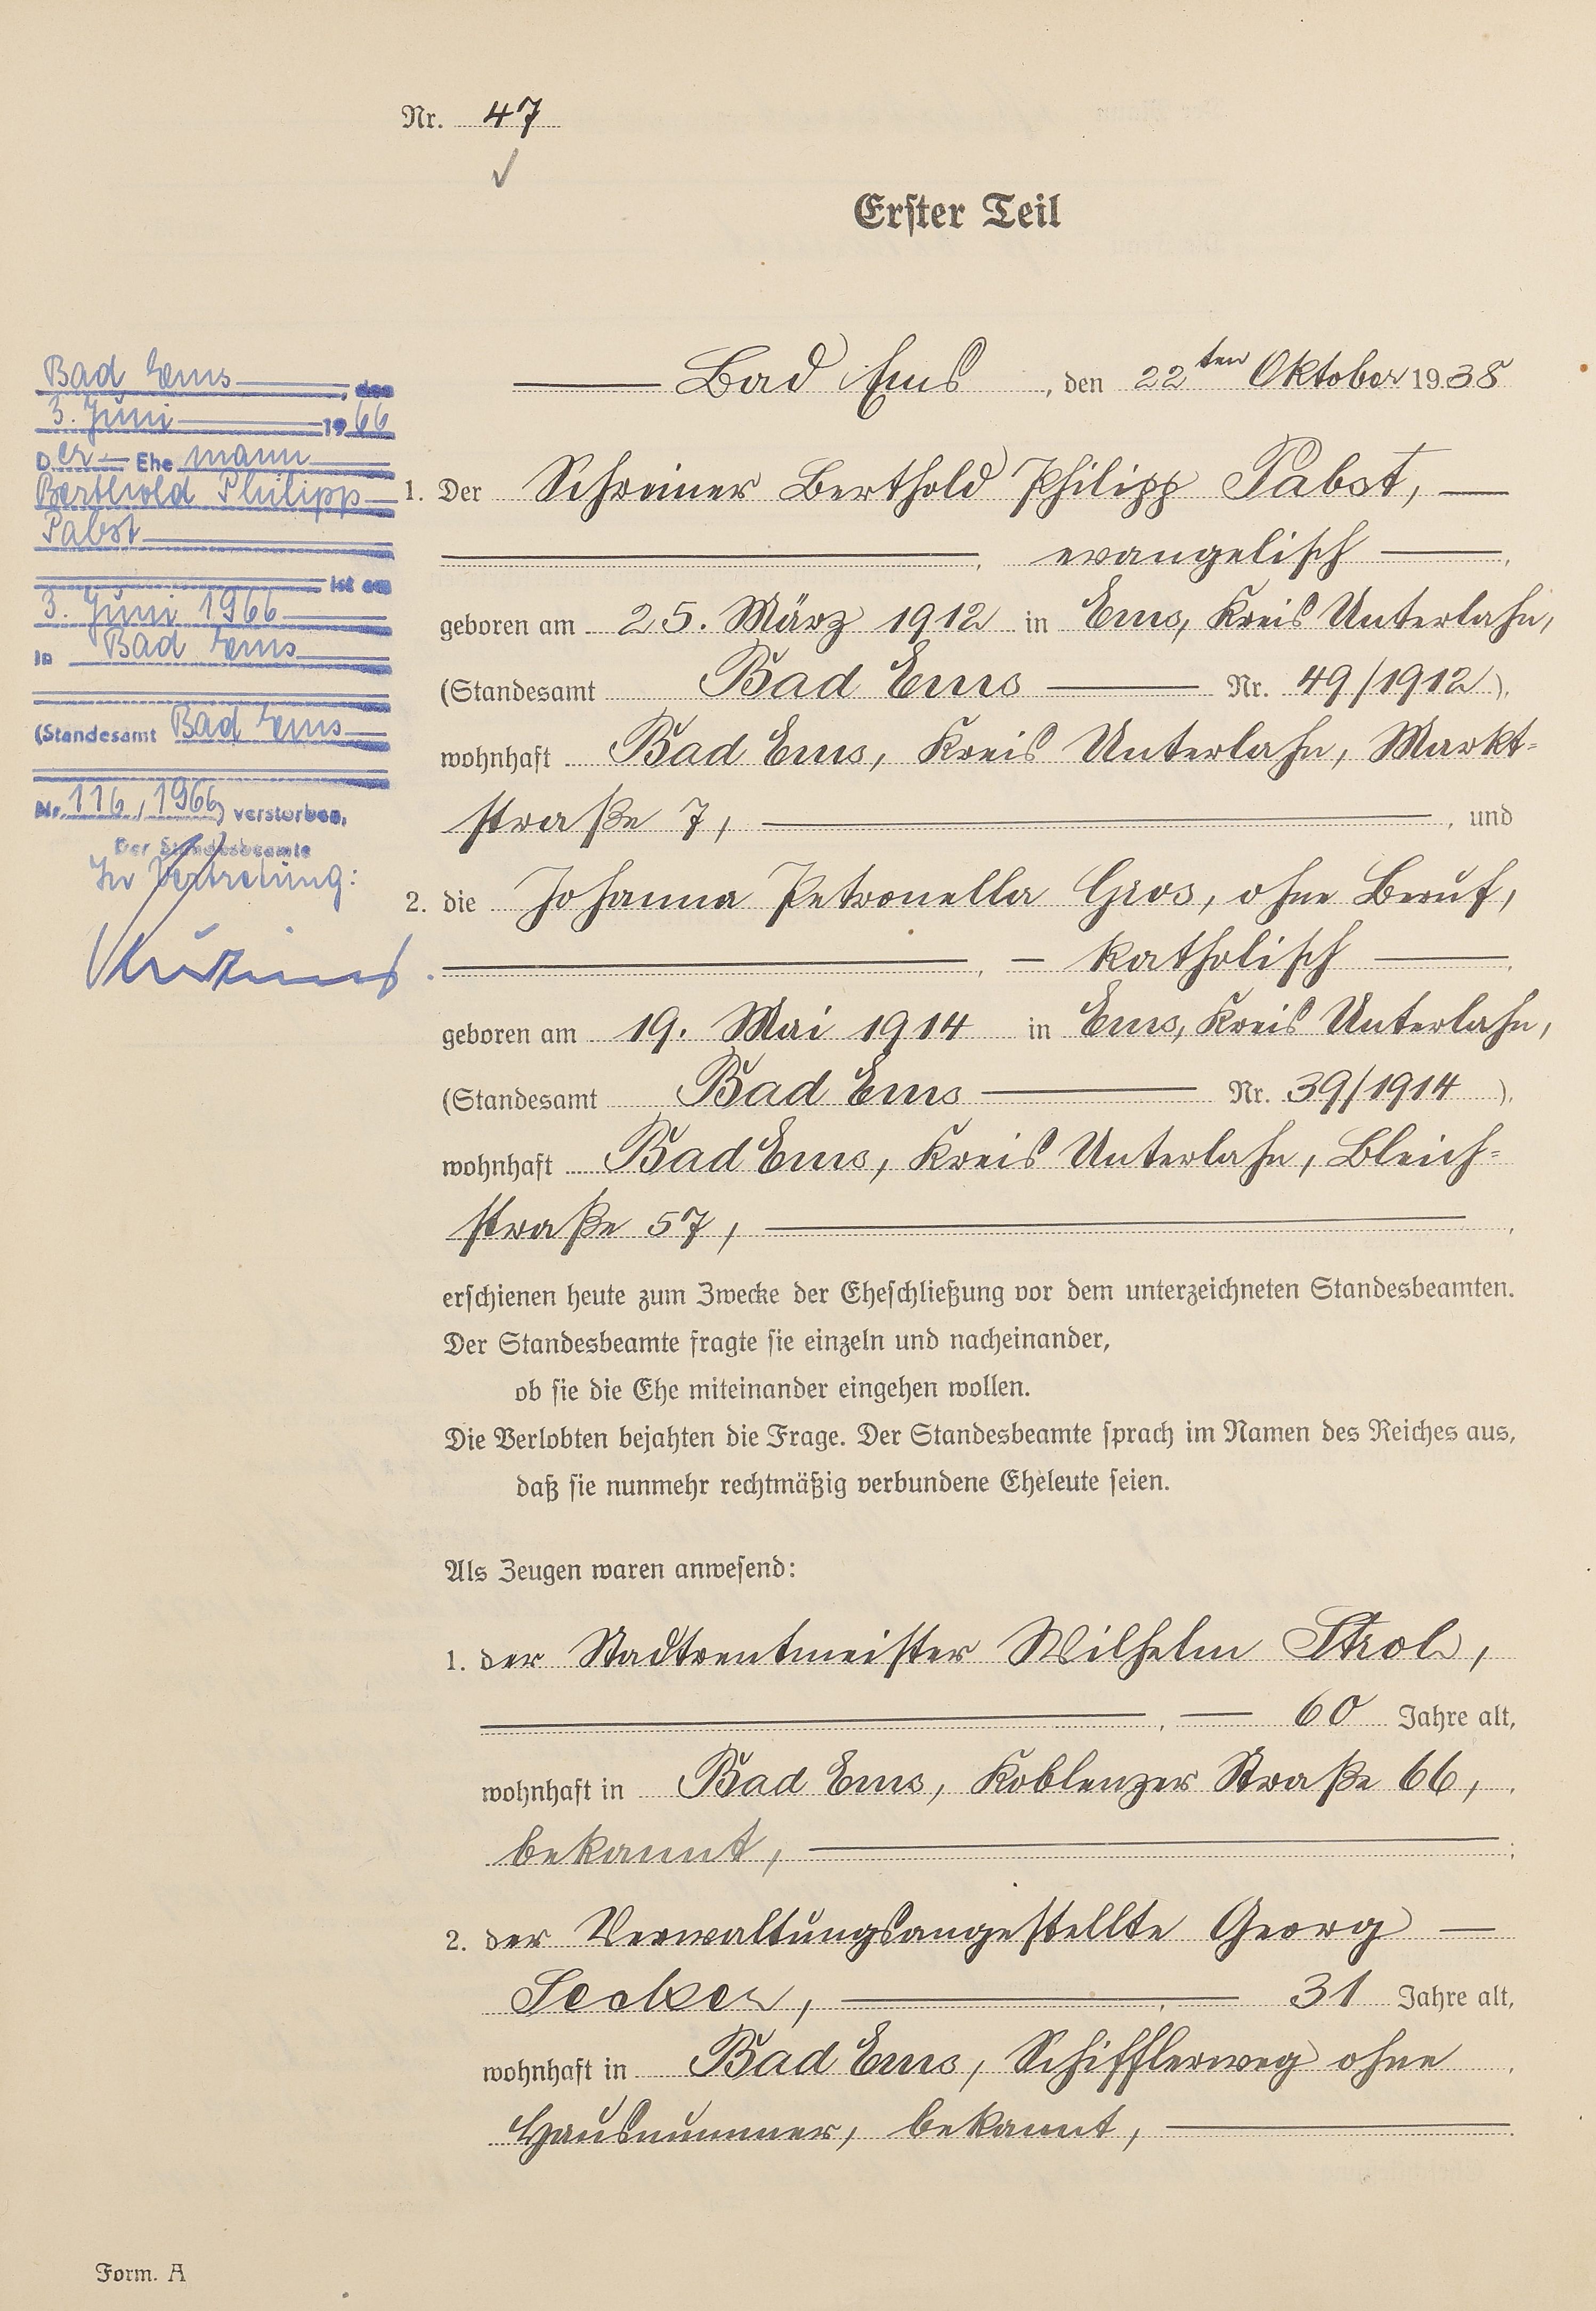 Nr. 47
Erster Teil
Bad Ems, den 22ten Oktober 1938
1. Der Schreiner Berthold Philipp Pabst,
, evangelisch,
geboren am 25. März 1912 in Ems, Kreis Unterlahn,
(Standesamt Bad Ems Nr. 49/1912),
wohnhaft Bad Ems, Kreis Unterlahn, Markt-
straße 7, , und
2. die Johanna Petronella Gros, ohne Beruf,
, katholisch,
geboren am 19. Mai 1914 in Ems, Kreis Unterlahn,
(Standesamt Bad Ems Nr. 39/1914),
wohnhaft Bad Ems, Kreis Unterlahn, Bleich-
straße 57, ,
erschienen heute zum Zwecke der Eheschließung vor dem unterzeichneten Standesbeamten.
Der Standesbeamte fragte sie einzeln und nacheinander,
ob sie die Ehe miteinander eingehen wollen.
Die Verlobten bejahten die Frage. Der Standesbeamte sprach im Namen des Reiches aus,
daß sie nunmehr rechtmäßig verbundene Eheleute seien.
Als Zeugen waren anwesend:
1. der Stadtrentmeister Wilhelm
, 60 Jahre alt,
wohnhaft in Bad Ems, Koblenzer Straße 66, ,
bekannt, ;
2. der Verwaltungsangestellte Georg
31 Jahre alt,
wohnhaft in Bad Ems, Schifflerweg ohne ,
Hausnummer, bekannt, .
Bad Ems, den
3. Juni 1966
Der Ehemann
Berthold Philipp
Pabst
ist am
3. Juni 1966
in Bad Ems
(Standesamt Bad Ems
Nr. 116/1966) verstorben.
Der Standesbeamte
In Vertretung:
Form. A